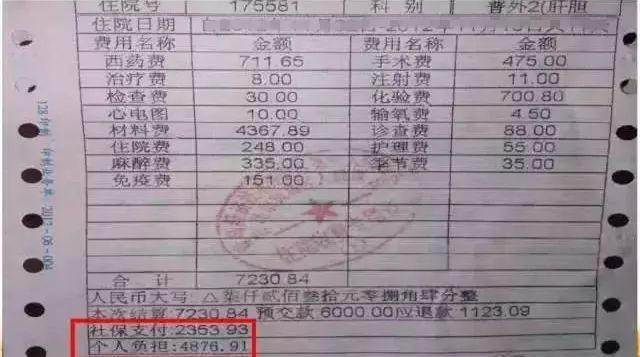 住院号 175581 科 别 普外2(肝胆
住院日期
费用名称 金额 费用名称 金额
西药费 711.65 手术费 475.00
治疗费 8.00 注射费 11.00
检查费 30.00 化验费 700.80
心电图 10.00 输氧费 4.50
材料费 4367.89 诊查费 88.00
住院费 248.00 护理费 55.00
麻醉费 335.00 季节费 35.00
免疫费 151.00
合 计 7230.84
人民币大写: △柒仟贰佰叁拾元零捌角肆分整
本次结算:7230.84 预交款 6000.00应退款 1123.09
社保支付:2353.93
个人负担:4876.91